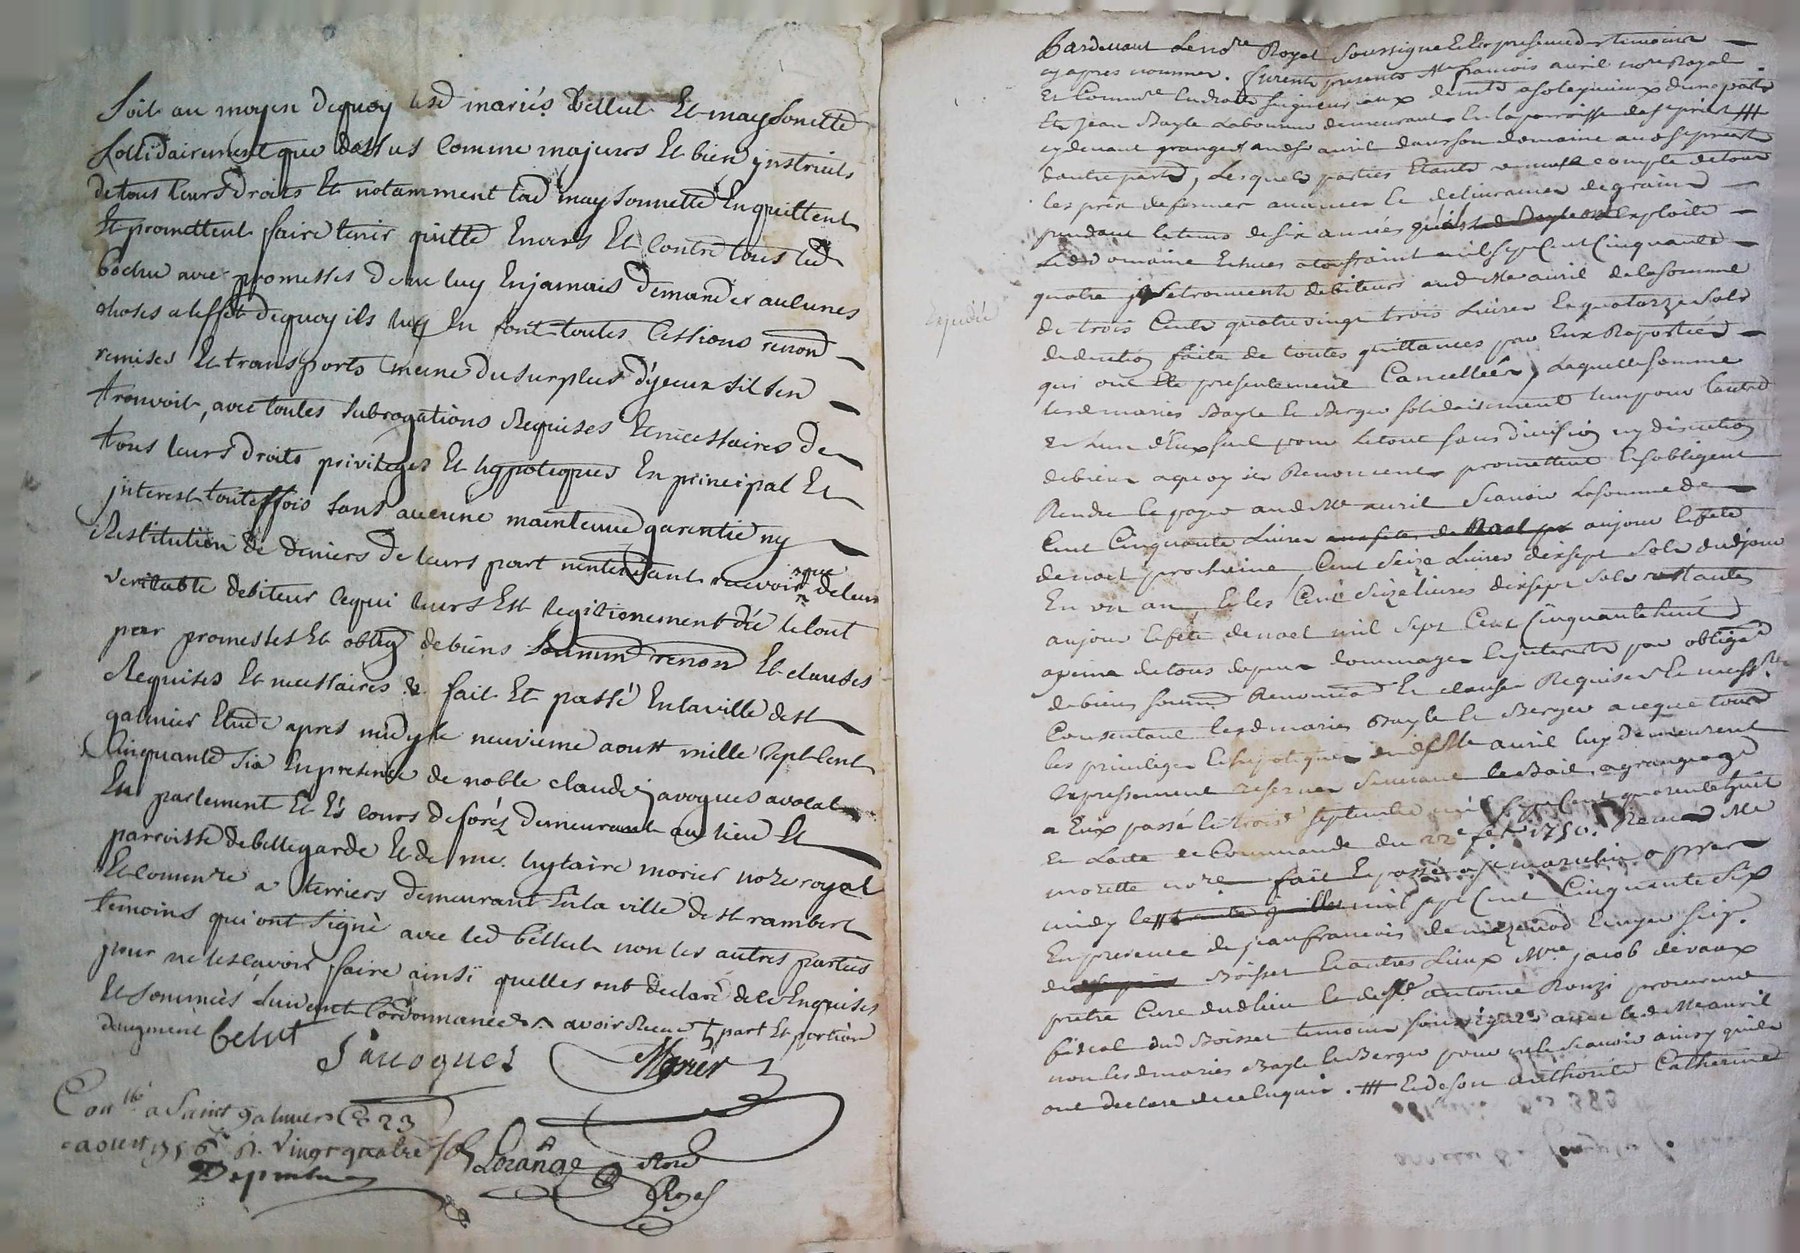 soit au moyen dequoy lesd mariés Bellut Et maysonette
sollidairement que dessus comme majeurs Et bien jnstruits
detous leurs droits Et notamment lad maysonnette En quittent
Et promettent faire tenir quitte Envers Et contre tous led
bochu avec promesses dene luy En jamais demander aucunes
choses a leffet dequoy ils luy En font toutes Cessions renon
remises Et transports meme du surplus dyceux sil sen
trouvoit, avec toutes subrogations Requises Et necessaires de
tous leurs droits privileges Et hypoteques En principal Et
jnterest touteffois sans aucune maintenue garentie ny
Restitution de deniers de leurs part nentendant recevoir que de leur
veritable debiteur cequi leurs Est legitimement dû le tout
par promesses Et oblig debiens soumin renon Et clauses
Requises Et necessaires & fait Et passé En la ville de st
galmier Etude apres midy le neuvieme aoust mille sept cent
Cinquante six En presence de noble claude javogues avocat
En parlement Et Es cours deforêz demeurant au lieu Et
parroisse debellegarde Et de me. hylaire morier nore royal
Et commre a terriers demeurant En la ville de st rambert
temoins qui ont signé avec led bellut non les autres parties
pour ne le scavoir faire ainsi quelles ont declaré de ce Enquises
Et sommés suivant lordonnance avoir Receu part Et portion
daugment belut
Javogues Morier
Con.lé a Saint galmier Ce 23
aout 1756 R. vingt quatre sols
Lorânge Nore
Royal
Pardevant Le nore Royal soussigné Et En presence des temoins
cy apres nommés. furent presents Me francois avril nore Royal
Et Commre En droits seigneuriaux demt a soleymieux dune part
Et Jean Bayle Laboureur demeurant En la parroisse de st priest
cydevant granger aud sr avril dans son domaine
dautre part, Lesquels parties Etant venus a compte de tous
les prix de fermes avances Et delivrances de grains
pendant le tems de six années quils Exploité
Led domaine Echues a toussaint mil sept Cent Cinquante
quatre se trouvent debiteurs aud Me avril de la somme
de trois Cents quatre vingt trois Livres Et quatorze sols
deduction faite de toutes quittances par Eux Raportées
qui ont Eté presentement Cancellées, Laquelle somme
lesd mariés Bayle Et Berger solidairement lun pour lautre
& lun dEux seul pour le tout sans division ny discution
debiens aquoy ils Renoncent promettent Et sobligent
Rendre Et payer aud Me avril Scavoir La somme de
Cent Cinquante Livres aujour Et fete
de noel prochaine Cent seize Livres dixsept sols dud jour
En un an Et les Cent seize livres dixsept sols restantes
aujour Et fete denoel mil sept Cent Cinquante huit
apeine de tous depens dommages Et jnterets par obligon
debiens soumin Renonciaon Et clauses Requises Et necessres
Consentant lesd mariés Bayle Et Berger a ceque tous
les privileges Et hypoteques dud Me avril luy demeurent
Expressement reservés suivant le Bail agrangeage
a Eux passé le trois septembre mil sept Cent quarente huit
Et Lacte de Commande du 22e 1750. Receu Me
morette nore fait Et passé a st marcelin apres
midy le trente juillet mil sept Cent Cinquante six
En presence de jean francois Ecuyer seigr.
de Boisset Et autres Lieux Mre jacob devaux
pretre Curé dud lieu Et de Me antoine Ronzi procureur
fiscal dud Boisset temoins soussignés avec led Me avril
non lesd mariés Bayle Et Berger pour ne le scavoir ainsy quils
ont declaré de ce Enquis. Et de son authorité Catherine